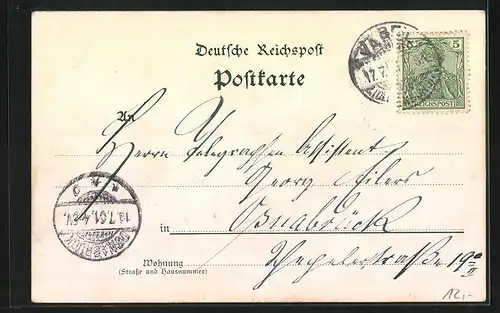 Deutsche Reichspost
Postkarte
VAREL
17.7.
5 5
REICHSPOST
An
Herrn Telegraphen Assistent
Georg Eilers
in Osnabrück
18.7.01. 4-5 N.
OSNABRÜCK
Wohnung
(Straße und Hausnummer)
straße 19
12,-